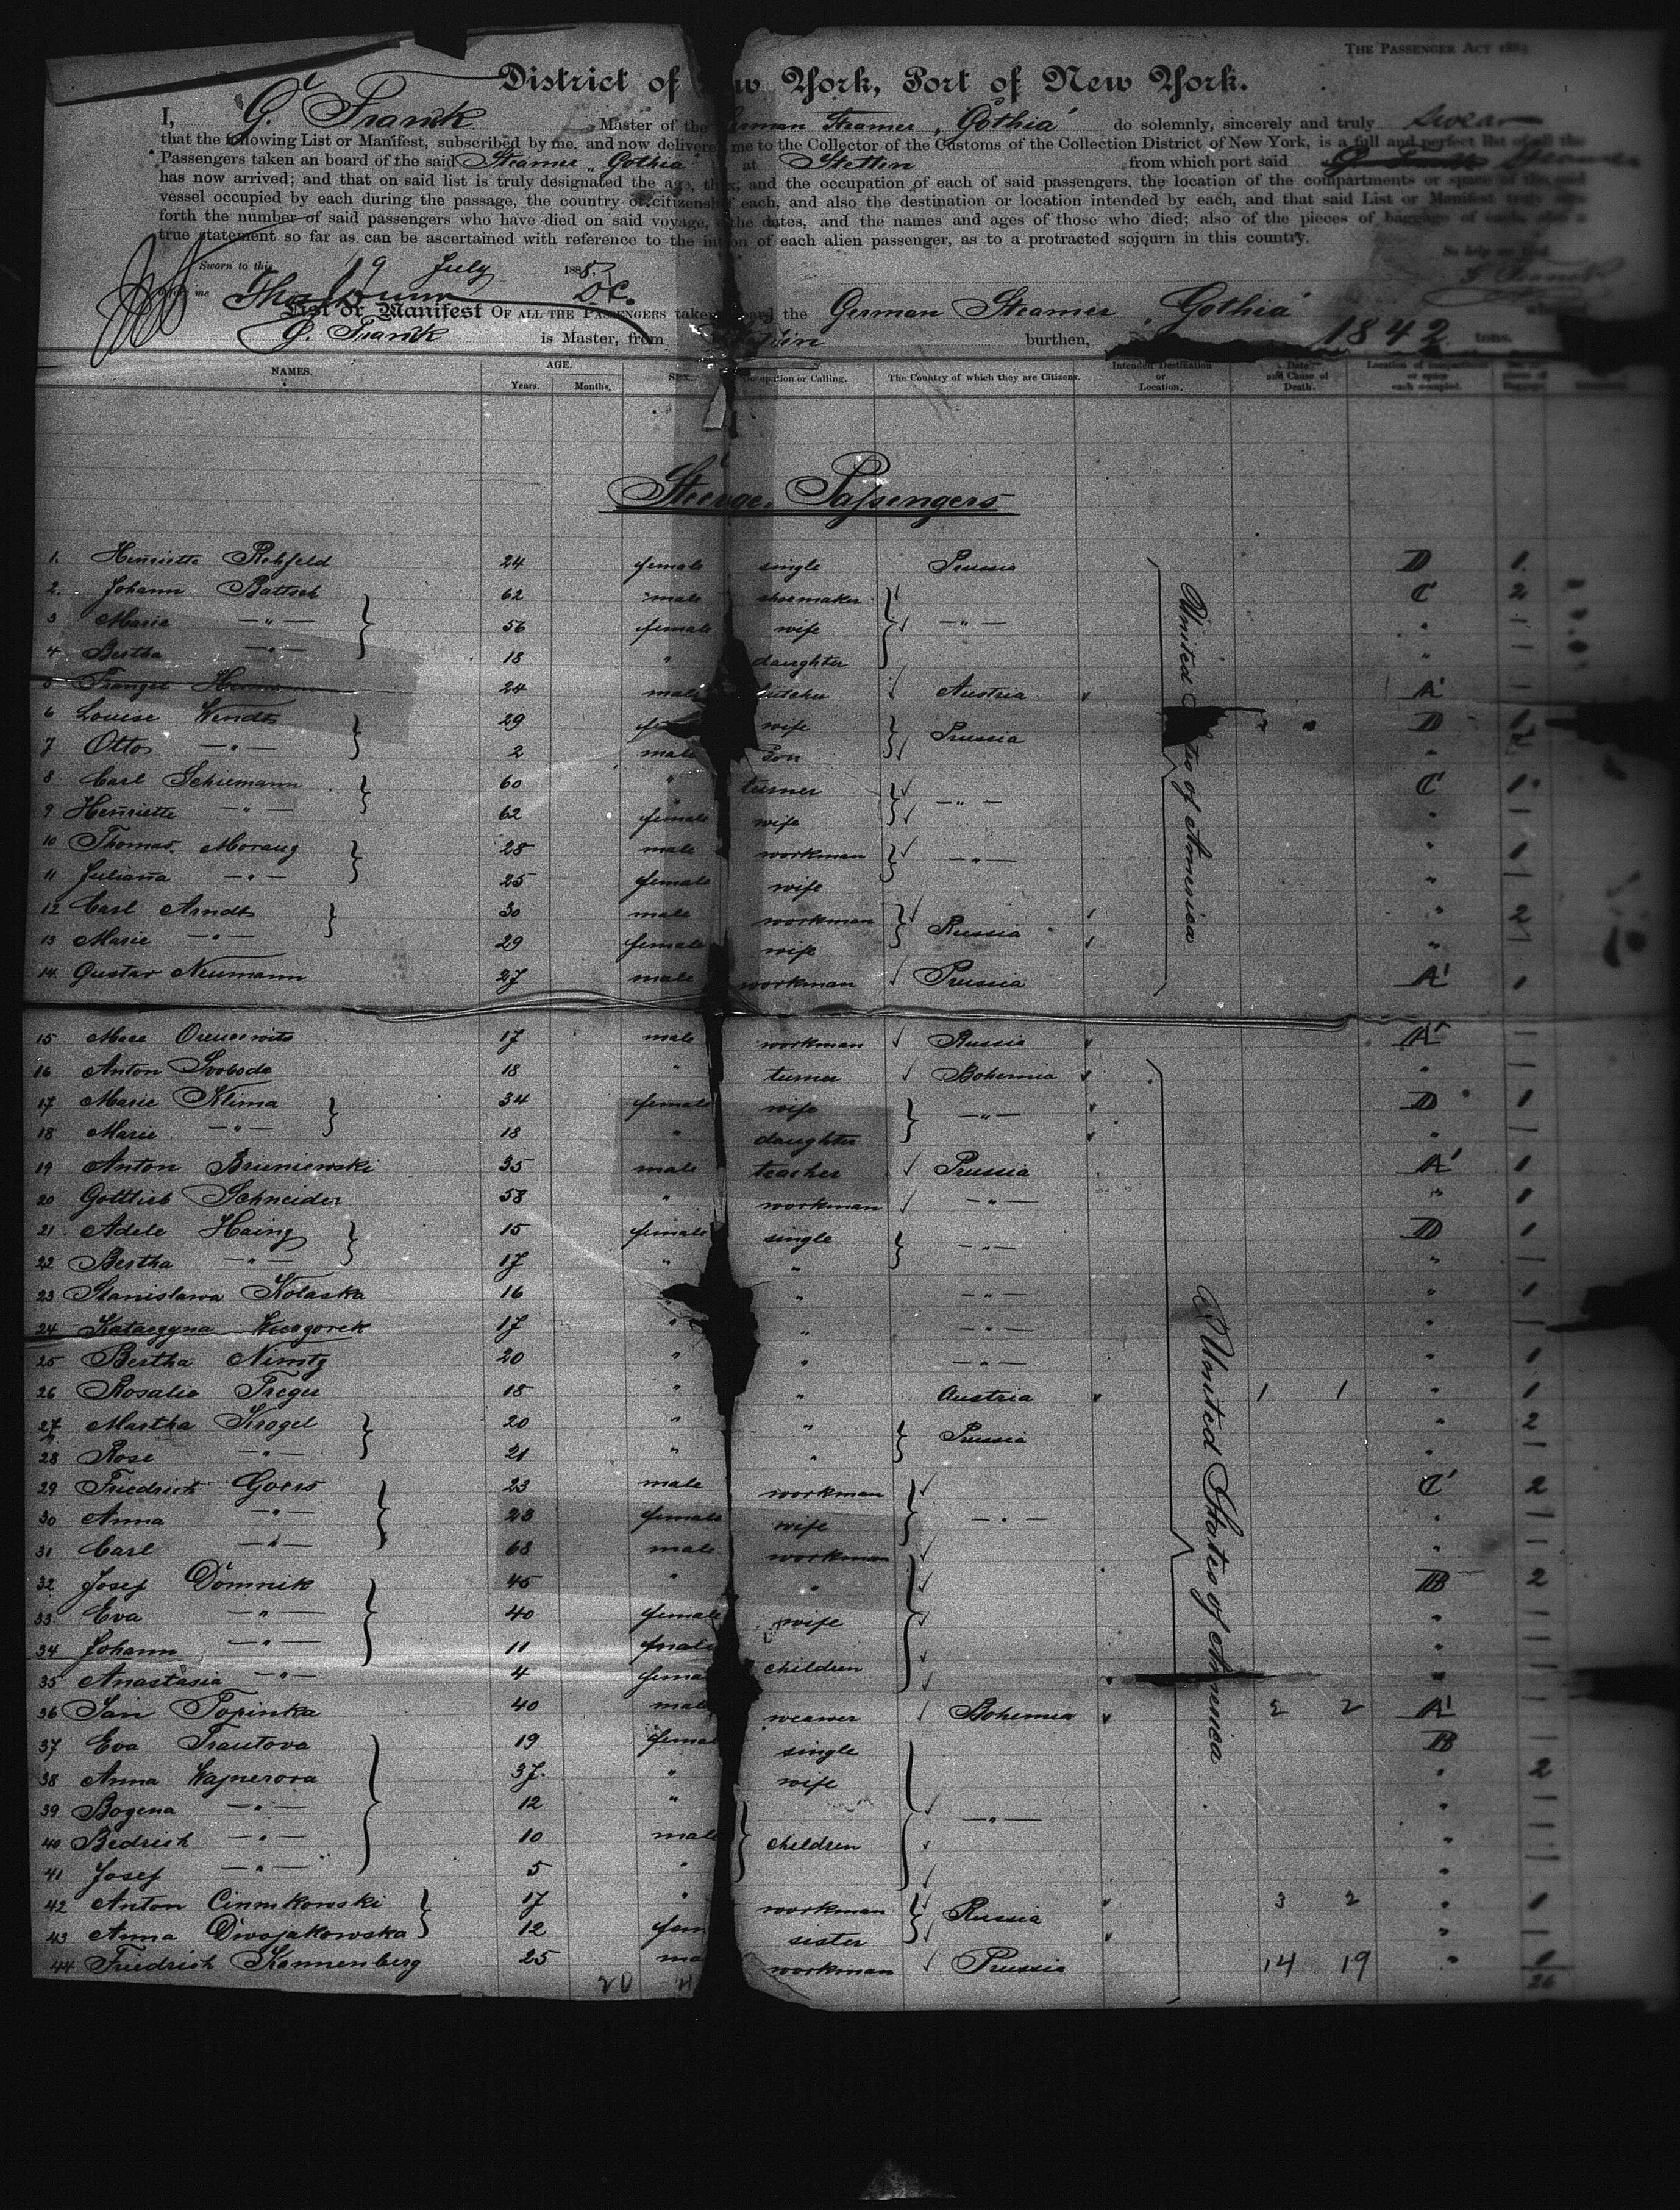 THE PASSENGER ACT 188
District of New York, Port of New York.
I, G. Franck Master of the German Steamer "Gothia" do solemnly, sincerely and truly swear
that the following List or Manifest, subscribed by me, and now delivered me to the Collector of the Customs of the Collection District of New York, is a full and perfect list of all the
Passengers taken an board of the said Steamer "Gothia" at Stettin from which port said Steamer
has now arrived; and that on said list is truly designated the age, the x; and the occupation of each of said passengers, the location of the compartments or space of the said
vessel occupied by each during the passage, the country of citizenship of each, and also the destination or location intended by each, and that said List or Manifest truly sets
forth the number of said passengers who have died on said voyage, the dates, and the names and ages of those who died; also of the pieces of baggage of each, also a
true statement so far as can be ascertained with reference to the in on of each alien passenger, as to a protracted sojourn in this country.
So help me God.
Sworn to this 19 July 188
G Franck
me D.C.
List or Manifest OF ALL THE PASSENGERS taken board the German Steamer "Gothia"
G. Franck is Master, from burthen, 1842 tons.
NAMES. AGE. Years. Months. SEX. Occupation or Calling. The Country of which they are Citizens. Intended Destination or Location. Date and Cause of Death. Location of compartment or space each occupied.
Steerage Passengers
1. Henriette Rehfeld 24 female single Prussia D 1.
2. Johann Battsch 62 male shoemaker C 2
3 Marie —"— 56 female wife —"— " —
4 Bertha —"— 18 " daughter " —
5 24 male butcher Austria A' —
6 Louise Wendt 29 fe wife Prussia D 1
7 Otto —"— 2 male Son "
8 Carl Schiemann 60 " turner —"— C 1
9 Henriette —"— 62 female wife " —
10 Thomas Moraug 28 male workman —"— " 1
11 Juliana —"— 25 female wife " —
12 Carl Arndt 30 male workman Russia " 2
13 Marie —"— 29 female wife " —
14. Gustav Neumann 27 male workman Prussia A' 1
United States of America
15 17 male workman Russia A' —
16 Anton Svoboda 18 " turner Bohemia " —
17 Marie Klima 34 female wife —"— D 1
18 Marie —"— 18 " daughter " —
19 Anton Brieniewski 35 male teacher Prussia A' 1
20 Gottlieb Schneider 58 " workman —"— " 1
21. Adele Haing 15 female single —"— D 1
22 Bertha —"— 17 " " " —
23 Stanislawa Kolaska 16 " " —"— " 1
24 Katarzyna 17 " " —"— " —
25 Bertha Nimtz 20 " " —"— " 1
26 Rosalie Treger 18 " " Austria 1 1 " 1
27 Martha Krogel 20 " " Prussia " 2
28 Rose —"— 21 " " " —
29 Friedrich Goers 23 male workman —"— C' 2
30 Anna —"— 23 female wife " —
31 Carl —"— 68 male workman " —
32 Josef Domnik 45 " " B 2
33 Eva —"— 40 female wife " —
34 Johann —"— 11 male children " —
35 Anastasia —"— 4 fema " —
36 Jan Topinka 40 male weawer Bohemia 2 2 A' —
37 Eva Trautova 19 femal single B —
38 Anna Wajnerova 37. " wife " 2
39 Bogena —"— 12 " children —"— " —
40 Bedrich —"— 10 male " —
41 Josef —"— 5 " " —
42 Anton Cinmkowski 17 " workman Russia 3 2 " 1
43 Anna Dwojakowska 12 fem sister " —
44 Friedrich Kannenberg 25 ma workman Prussia 14 19 " 1
United States of America
20 26